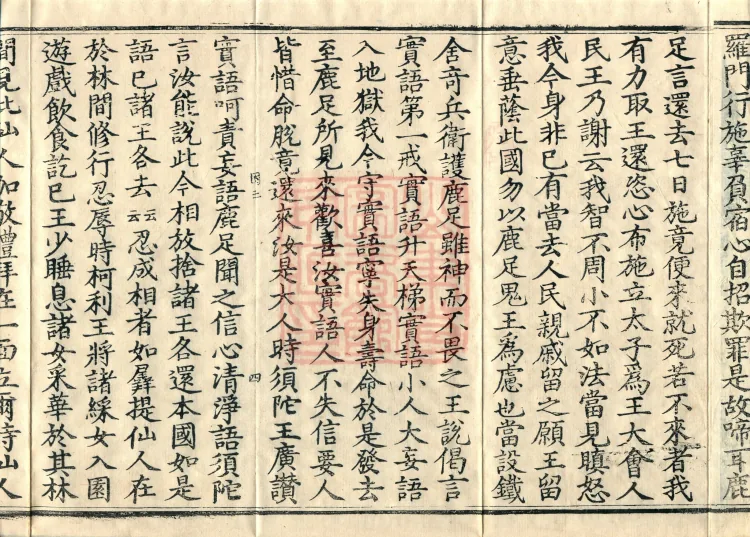 羅門行施辜負宿心自招欺罪是故啼耳鹿
足言還去七日施竟便來就死若不來者我
有力取王還恣心布施立太子為王大會人
民王乃謝云我智不周小不如法當見瞋怒
我今身非已有當去人民親戚留之願王留
意垂蔭此國勿以鹿足鬼王為慮也當設鐵
舍竒兵衛護鹿足雖神而不畏之王說偈言
實語第一戒實語升天梯實語小人大妄語
入地獄我今守實語寧失身壽命於是發去
至鹿足所見來歡喜汝實語人不失信要人
皆惜命脫竟還來汝是大人時須陀王廣讚
四
實語呵責妄語鹿足聞之信心清淨語須陀
言汝能說此今相放捨諸王各還本國如是
語已諸王各去云云忍成相者如羼提仙人在
於林間修行忍辱時柯利王將諸綵女入園
遊戲飲食訖已王少睡息諸女采華於其林
間見此仙人加敬禮拜在一面立爾時仙人